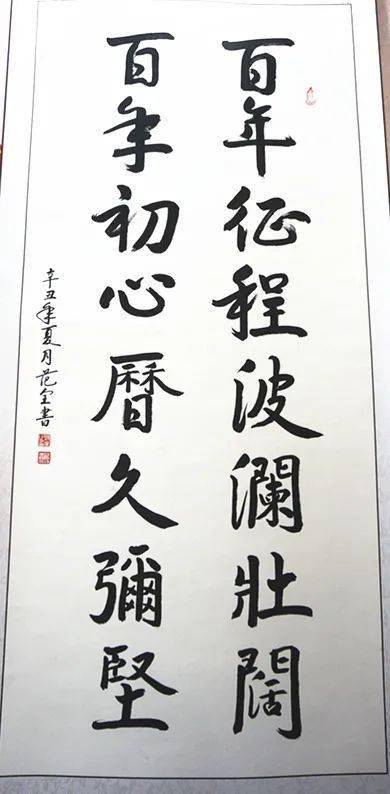 百年征程波瀾壯闊
百年初心曆久彌堅
辛丑年夏月范全書